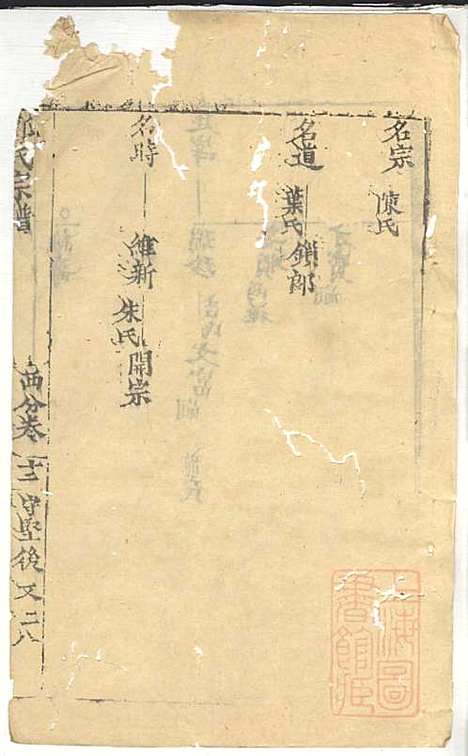 名宗 陳氏
名道 葉氏 鎖郎
名時 維新 朱氏 開宗
氏宗譜
西分卷 十三 守堅後 又二八
上海圖
書館藏